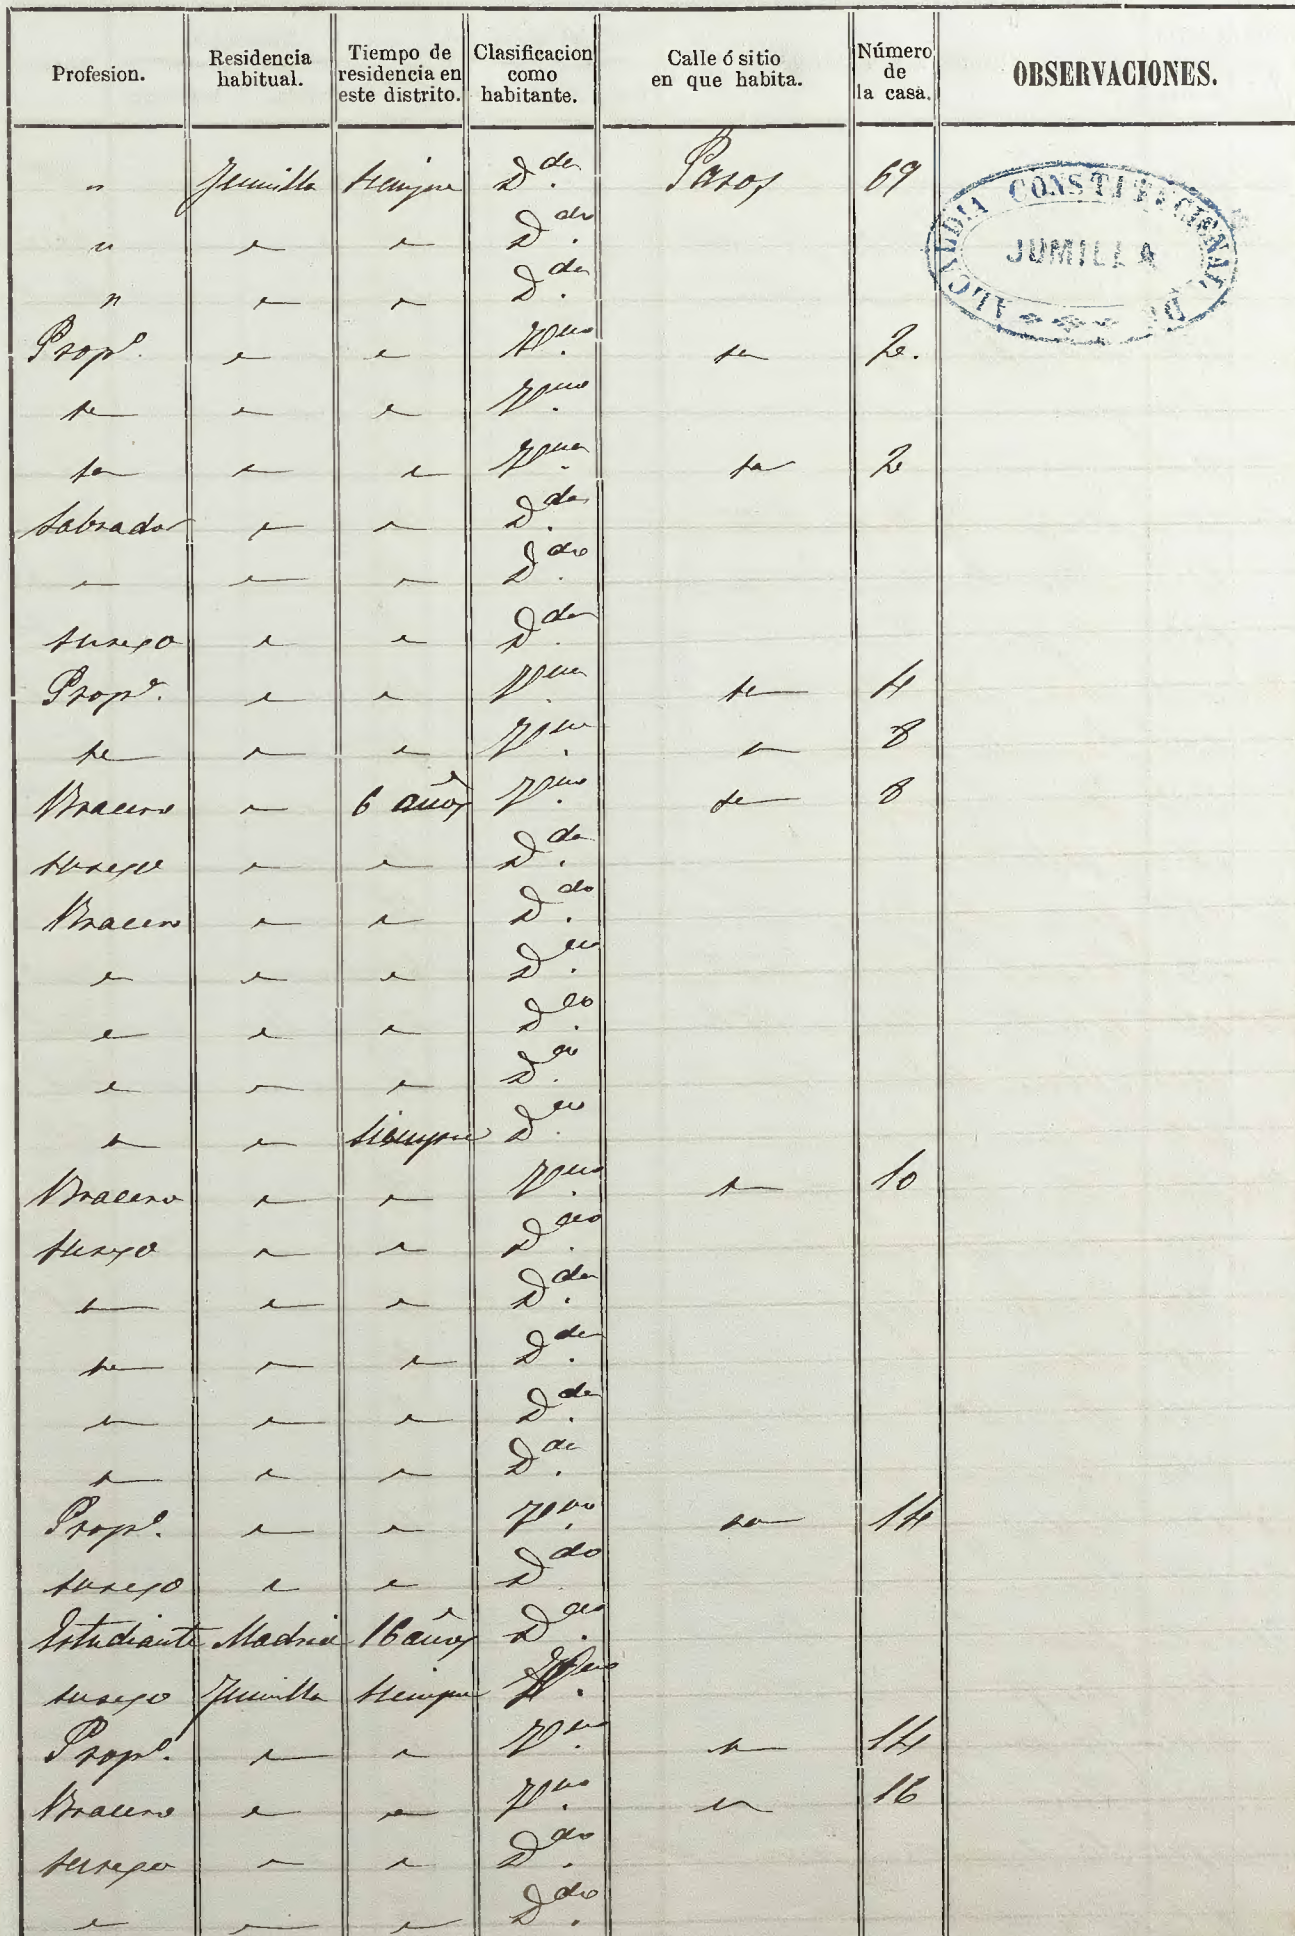 Profesion. Residencia habitual. Tiempo de residencia en este distrito. Clasificacion como habitante. Calle ó sitio en que habita. Número de la casa. OBSERVACIONES.
" Jumilla siempre D.da Pasos 69
ALCALDIA CONSTITUCIONAL DE JUMILLA
" " " D.do
" " " D.da
Prop.o " " V.no " 2.
" " " V.no
" " " V.na " 2
Labrador " " D.do
" " " D.do
su sexo " " D.da
Prop.a " " V.na " 4
" " " V.no " 8
Bracero " 6 años V.no " 8
su sexo " " D.da
Bracero " " D.do
" " " D.do
" " " D.do
" " " D.do
" " siempre D.do
Bracero " " V.no " 10
su sexo " " D.da
" " " D.da
" " " D.da
" " " D.da
" " " D.da
Prop.o " " V.no " 14
su sexo " " D.da
Estudiante Madrid 16 años D.do
su sexo Jumilla siempre
Prop.o " " V.no " 14
Bracero " " V.no " 16
su sexo " " D.da
" " " D.do